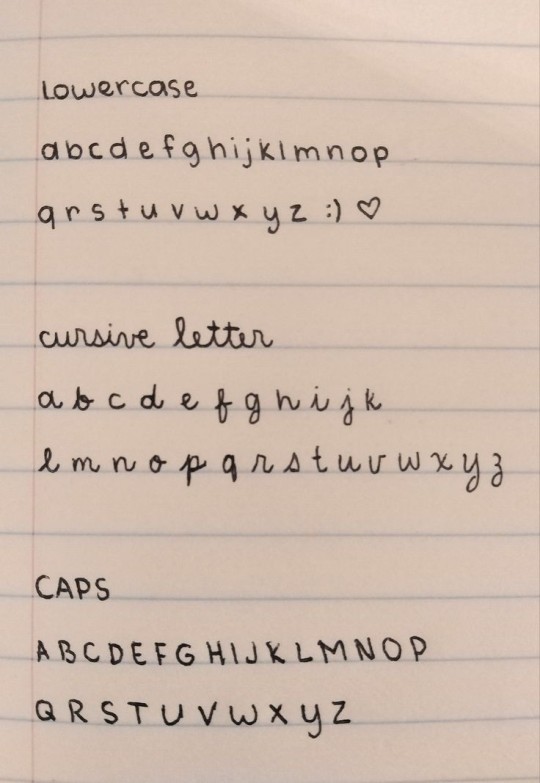 Lowercase
a b c d e f g h i j k l m n o p
q r s t u v w x y z :) ♡
cursive letter
a b c d e f g h i j k
l m n o p q r s t u v w x y z
CAPS
A B C D E F G H I J K L M N O P
Q R S T U V W X Y Z